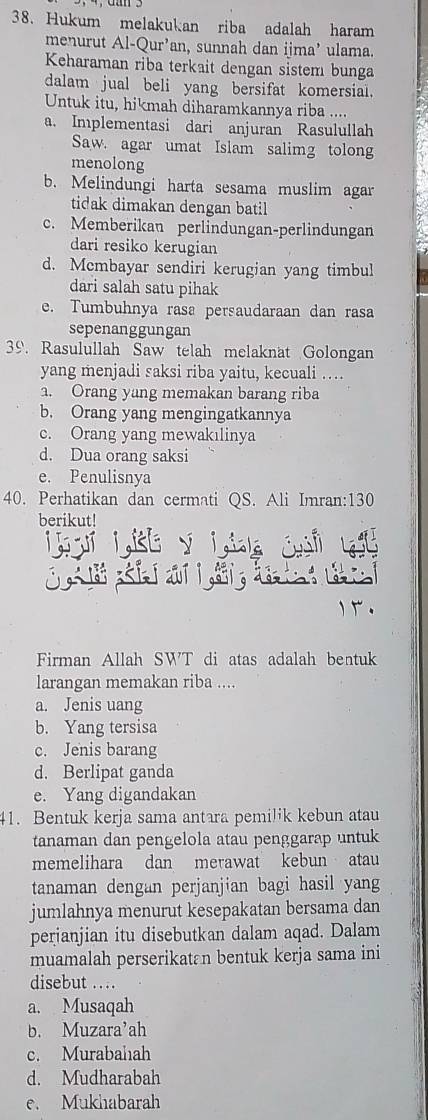 38. Hukum melakukan riba adalah haram
menurut Al-Qur'an, sunnah dan ijma' ulama.
Keharaman riba terkait dengan sistem bunga
dalam jual beli yang bersifat komersial.
Untuk itu, hikmah diharamkannya riba ....
a. Implementasi dari anjuran Rasulullah
Saw. agar umat Islam salimg tolong
menolong
b. Melindungi harta sesama muslim agar
tidak dimakan dengan batil
c. Memberikan perlindungan-perlindungan
dari resiko kerugian
d. Membayar sendiri kerugian yang timbul
dari salah satu pihak
e. Tumbuhnya rasa persaudaraan dan rasa
sepenanggungan
39. Rasulullah Saw telah melaknat Golongan
yang menjadi saksi riba yaitu, kecuali ....
a. Orang yang memakan barang riba
b. Orang yang mengingatkannya
c. Orang yang mewakilinya
d. Dua orang saksi
e. Penulisnya
40. Perhatikan dan cermati QS. Ali Imran:130
berikut!
يَٰٓأَيُّهَا ٱلَّذِينَ ءَامَنُواْ لَا تَأْكُلُواْ ٱلرِّبَوٰٓاْ
أَضْعَٰفًا مُّضَٰعَفَةً وَٱتَّقُواْ ٱللَّهَ لَعَلَّكُمْ تُفْلِحُونَ
١٣٠
Firman Allah SWT di atas adalah bentuk
larangan memakan riba ....
a. Jenis uang
b. Yang tersisa
c. Jenis barang
d. Berlipat ganda
e. Yang digandakan
41. Bentuk kerja sama antara pemilik kebun atau
tanaman dan pengelola atau penggarap untuk
memelihara dan merawat kebun atau
tanaman dengan perjanjian bagi hasil yang
jumlahnya menurut kesepakatan bersama dan
perjanjian itu disebutkan dalam aqad. Dalam
muamalah perserikatan bentuk kerja sama ini
disebut ....
a. Musaqah
b. Muzara'ah
c. Murabahah
d. Mudharabah
e. Mukhabarah